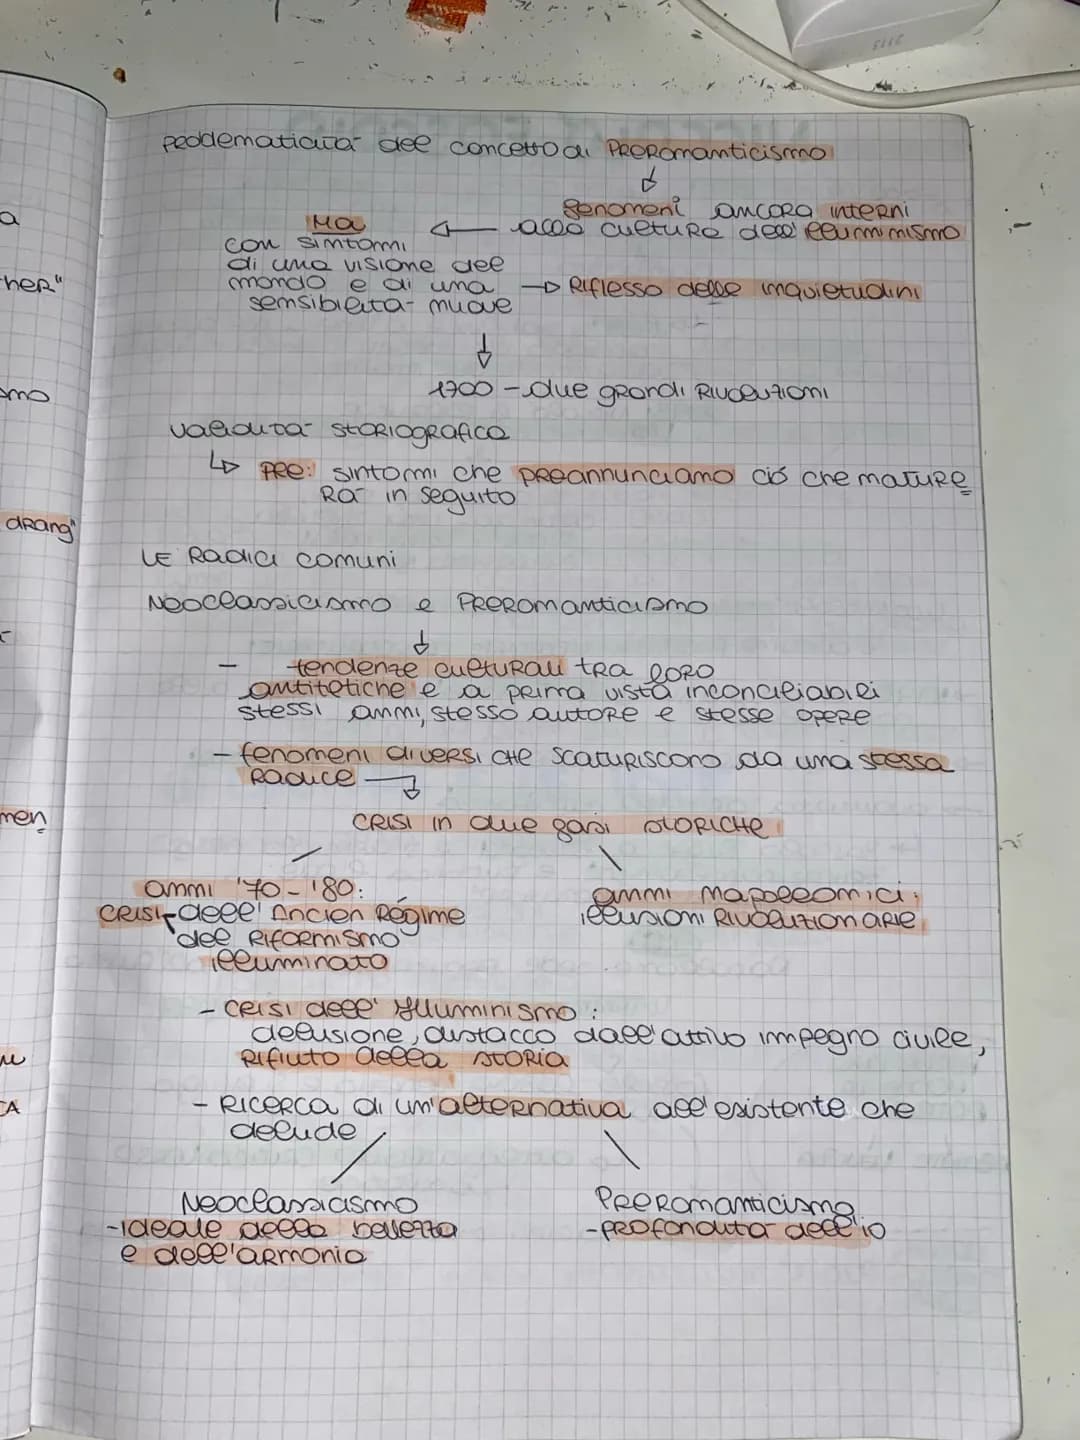 2113
problematicità del concetto di PREROmanticismo
fenomeni ancora interni
alla cultura dell'illuminismo
Ma
con sintomi
di una visione del
mondo e di una
sensibilità nuove
Riflesso delle inquietudini
1700 - due grandi Rivoluzioni
validità storiografica
PRE: sintomi che preannunciano ciò che mature
Rà in seguito
LE Radici comuni
Neoclassicismo e PREROmanticismo
- tendenze culturali tra loro
antitetiche e a prima vista inconciliabili
stessi anni, stesso autore e stesse opere
- fenomeni diversi che scaturiscono da una stessa
Radice
CRISI in due fasi STORICHE
anni '70 - '80:
CRISI dell'Ancien Régime
del Riformismo
illuminato
anni napoleonici:
illusioni Rivoluzionarie
- crisi dell'Illuminismo:
delusione, distacco dall'attivo impegno civile,
Rifiuto della STORIA
- RICERCA di un'alternativa all'esistente che
delude
Neoclassicismo
- ideale della bellezza
e dell'armonia
PREROmanticismo
- profondità dell'io
a
her"
smo
drang"
men
TA